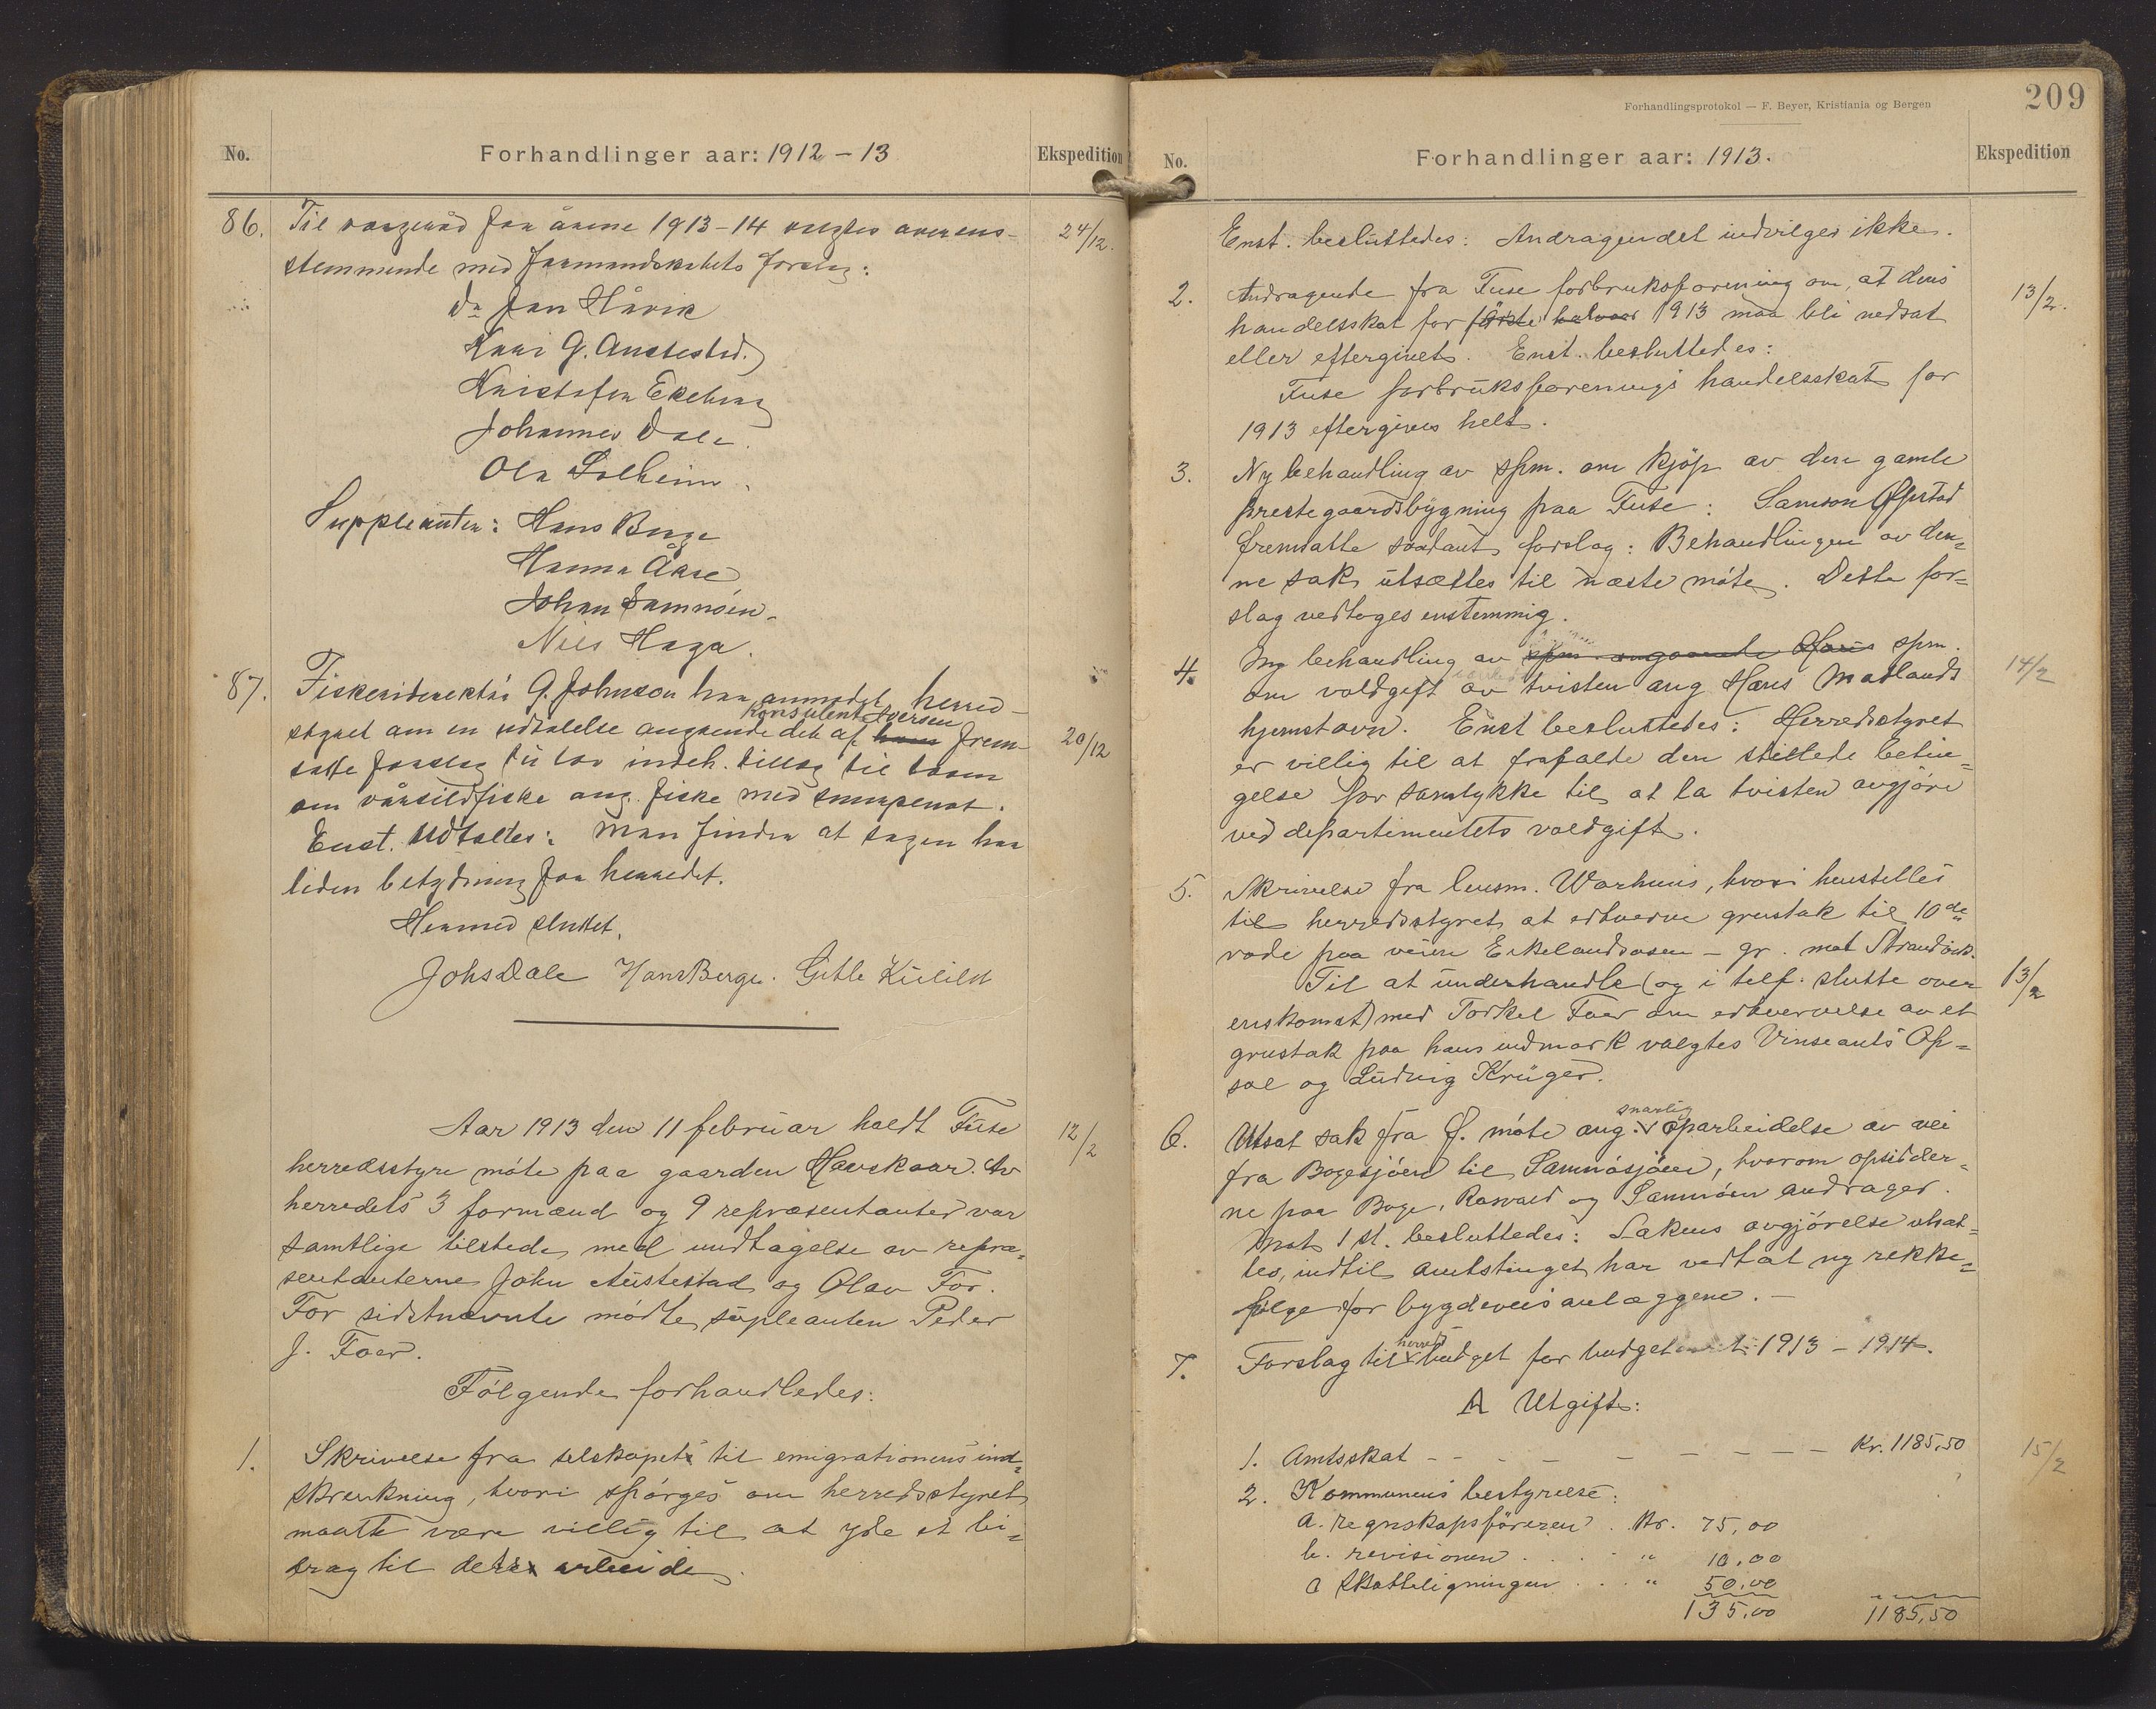 No.
Forhandlinger aar: 1912-13
Ekspedition
86. Til værgeraad for årene 1913-14 valgtes overens-
24/12.
stemmende med formandskabets forslag:
Dr Jan Hårvik
Kari G. Austestad.
Kristofer Ekehaug
Johannes Dale.
Ola Solheim.
Suppleanter: Hans Berge
Hanna Åase
Johan Samnöen.
Nils Haga.
87. Fiskeridirektör G. Johnson har anmodet herred-
konsulent Iversen
styret om en udtalelse angaaende det af hans frem-
20/12
satte forslag til lov indeh. tillæg til loven
om vårsildfiske ang. fiske med snurpenot.
Enst. Udtaltes: Man finder at sagen har
liden betydning for herredet.
Hermed sluttet.
Johs Dale Hans Berge. Gitle Kilild
Aar 1913 den 11 februar holdt Fuse
12/2
herredsstyre möte paa gaarden Havskaar. Av
herredets 3 formænd og 9 repræsentanter var
samtlige tilstede med undtagelse av repræ=
sentanterne John Austestad og Olav For.
For sidstnævnte mödte supleanten Peder
J. Foer.
Fölgende forhandledes:
1. Skrivelse fra selskapet til emigrationens ind=
skrenkning, hvori spörges om herredsstyret
maatte være villig til at yde et bi=
drag til dets arbeide.
Forhandlingsprotokol — F. Beyer, Kristiania og Bergen
209
No.
Forhandlinger aar: 1913.
Ekspedition
Enst. besluttedes: Andragendet indvilges ikke.
2. Andragende fra Fuse forbruksforening om, at dens
13/2.
handelsskat for förste halvaar 1913 maa bli nedsat
eller eftergivet. Enst. besluttedes:
Fuse forbruksforenings handelsskat for
1913 eftergives helt.
3. Ny behandling av spm. om kjöp av den gamle
prestegaardsbygning paa Fuse: Samson Øpstad
fremsatte saadant forslag: Behandlingen av den=
ne sak utsættes til næste möte. Dette for=
slag vedtoges enstemmig.
4. Ny behandling av spm. angaaende Hans spm.
14/2
om voldgift av tvisten ang Hans Madlands
hjemstavn. Enst besluttedes: Herredsstyret
er villig til at frafalde den stillede betin=
gelse for samtykke til at la tvisten avgjöre
ved departementets voldgift.
5. Skrivelse fra lensm. Warhuus, hvori henstilles
til herredsstyret at erhverve grustak til 10de
rode paa veien Eikelandsosen - gr. mot Strandvik.
Til at underhandle (og i telf. slutte over
13/2
enskomst) med Torkel Foer om erhvervelse av et
grustak paa hans indmark valgtes Vinseants Op=
sal og Ludvig Krüger.
snarlig
6. Utsat sak fra f. möte ang. oparbeidelse av vei
fra Bogesjöen til Samnösjöen, hvorom opsidder=
ne paa Boge, Rosvald og Samnöen andrager.
Mot 1 st. besluttedes: Sakens avgjörelse utsæt=
tes, indtil amtstinget har vedtat ny rekke=
fölge for bygdeveisanlæggene. -
herreds
7. Forslag til budget for budget 1913 - 1914.
A Utgift:
1. Amtsskat - - - - - - - - - Kr. 1185,50
15/2
2. Kommunens bestyrelse:
a. regnskapsföreren . Kr. 75,00
b. revisionen . . . . " 10,00
c skatteligningen . . . " 50,00
135,00 1185,50